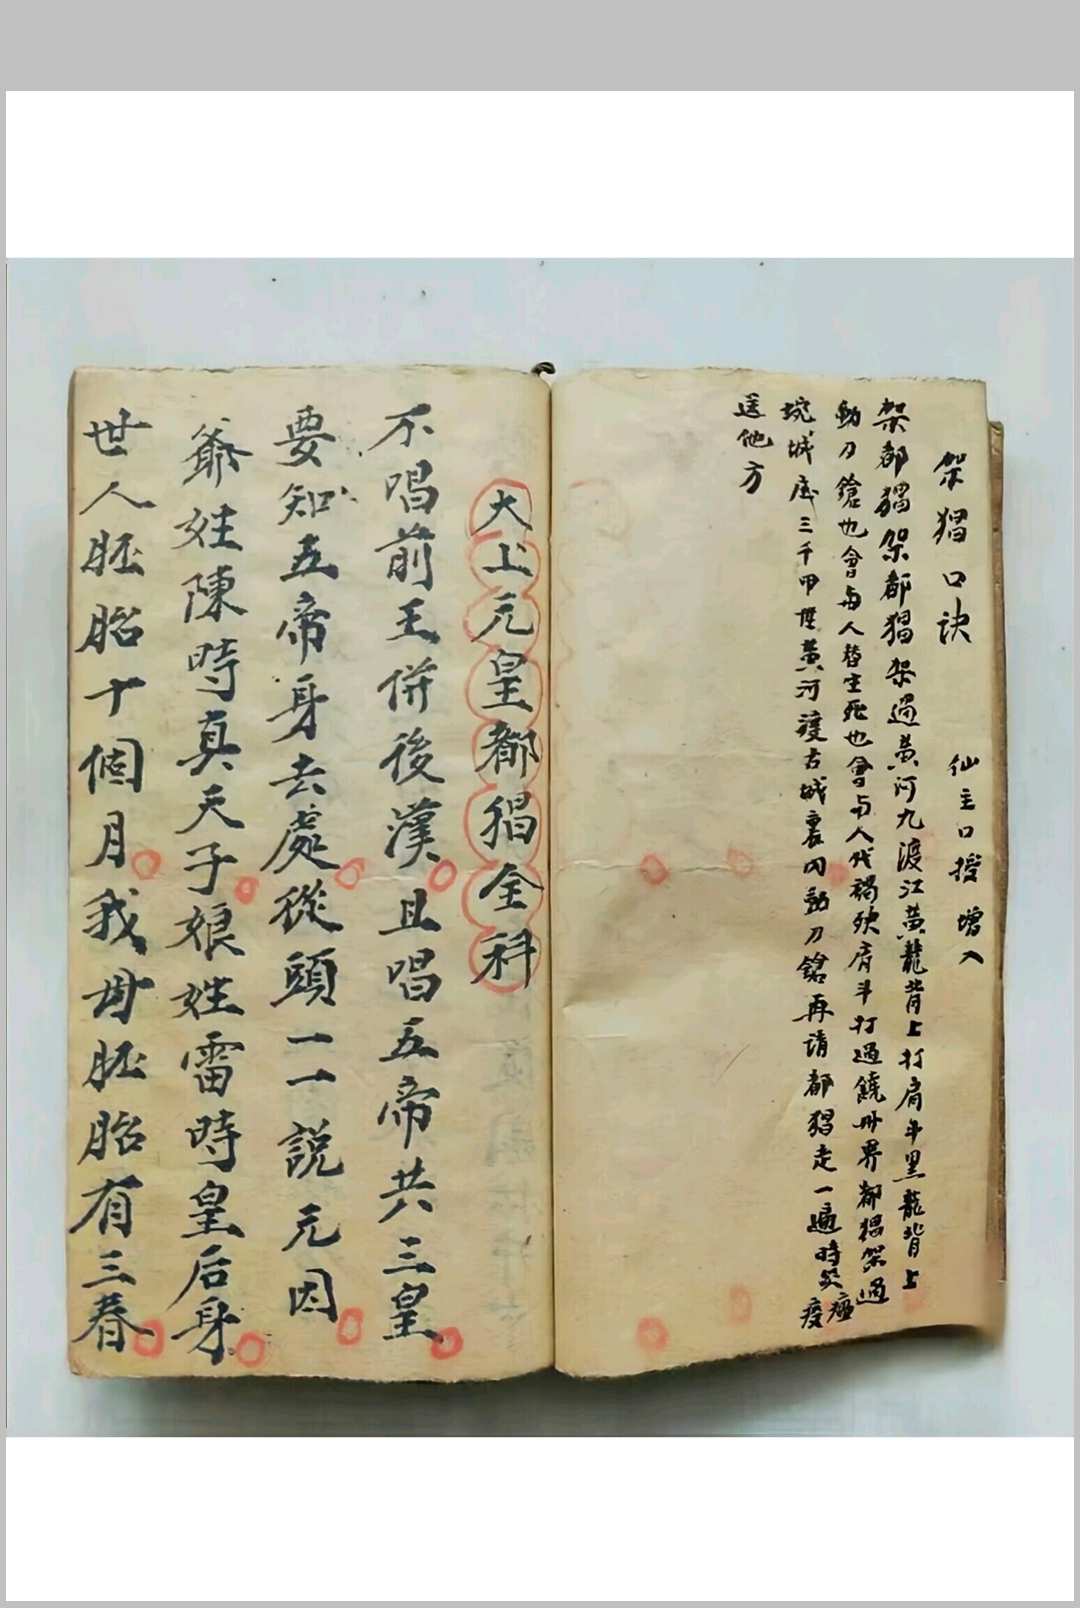 架猖口訣 仙主口授增入
架都猖架都猖架過黄河九渡江黄龍背上打肩斗黑龍背上
動刀鎗也會与人替生死也會与人代禍殃肩斗打過饒州界都猖架過
城底三千甲黄河渡古城裏內動刀鎗再請都猖走一遍時災瘟疫
送他方
太上元皇都猖全科
不唱前王併後漢且唱五帝共三皇
要知五帝身去處從頭一一說元因
爺姓陳時真天子娘姓雷時皇后身
世人胚胎十個月我母胚胎有三春